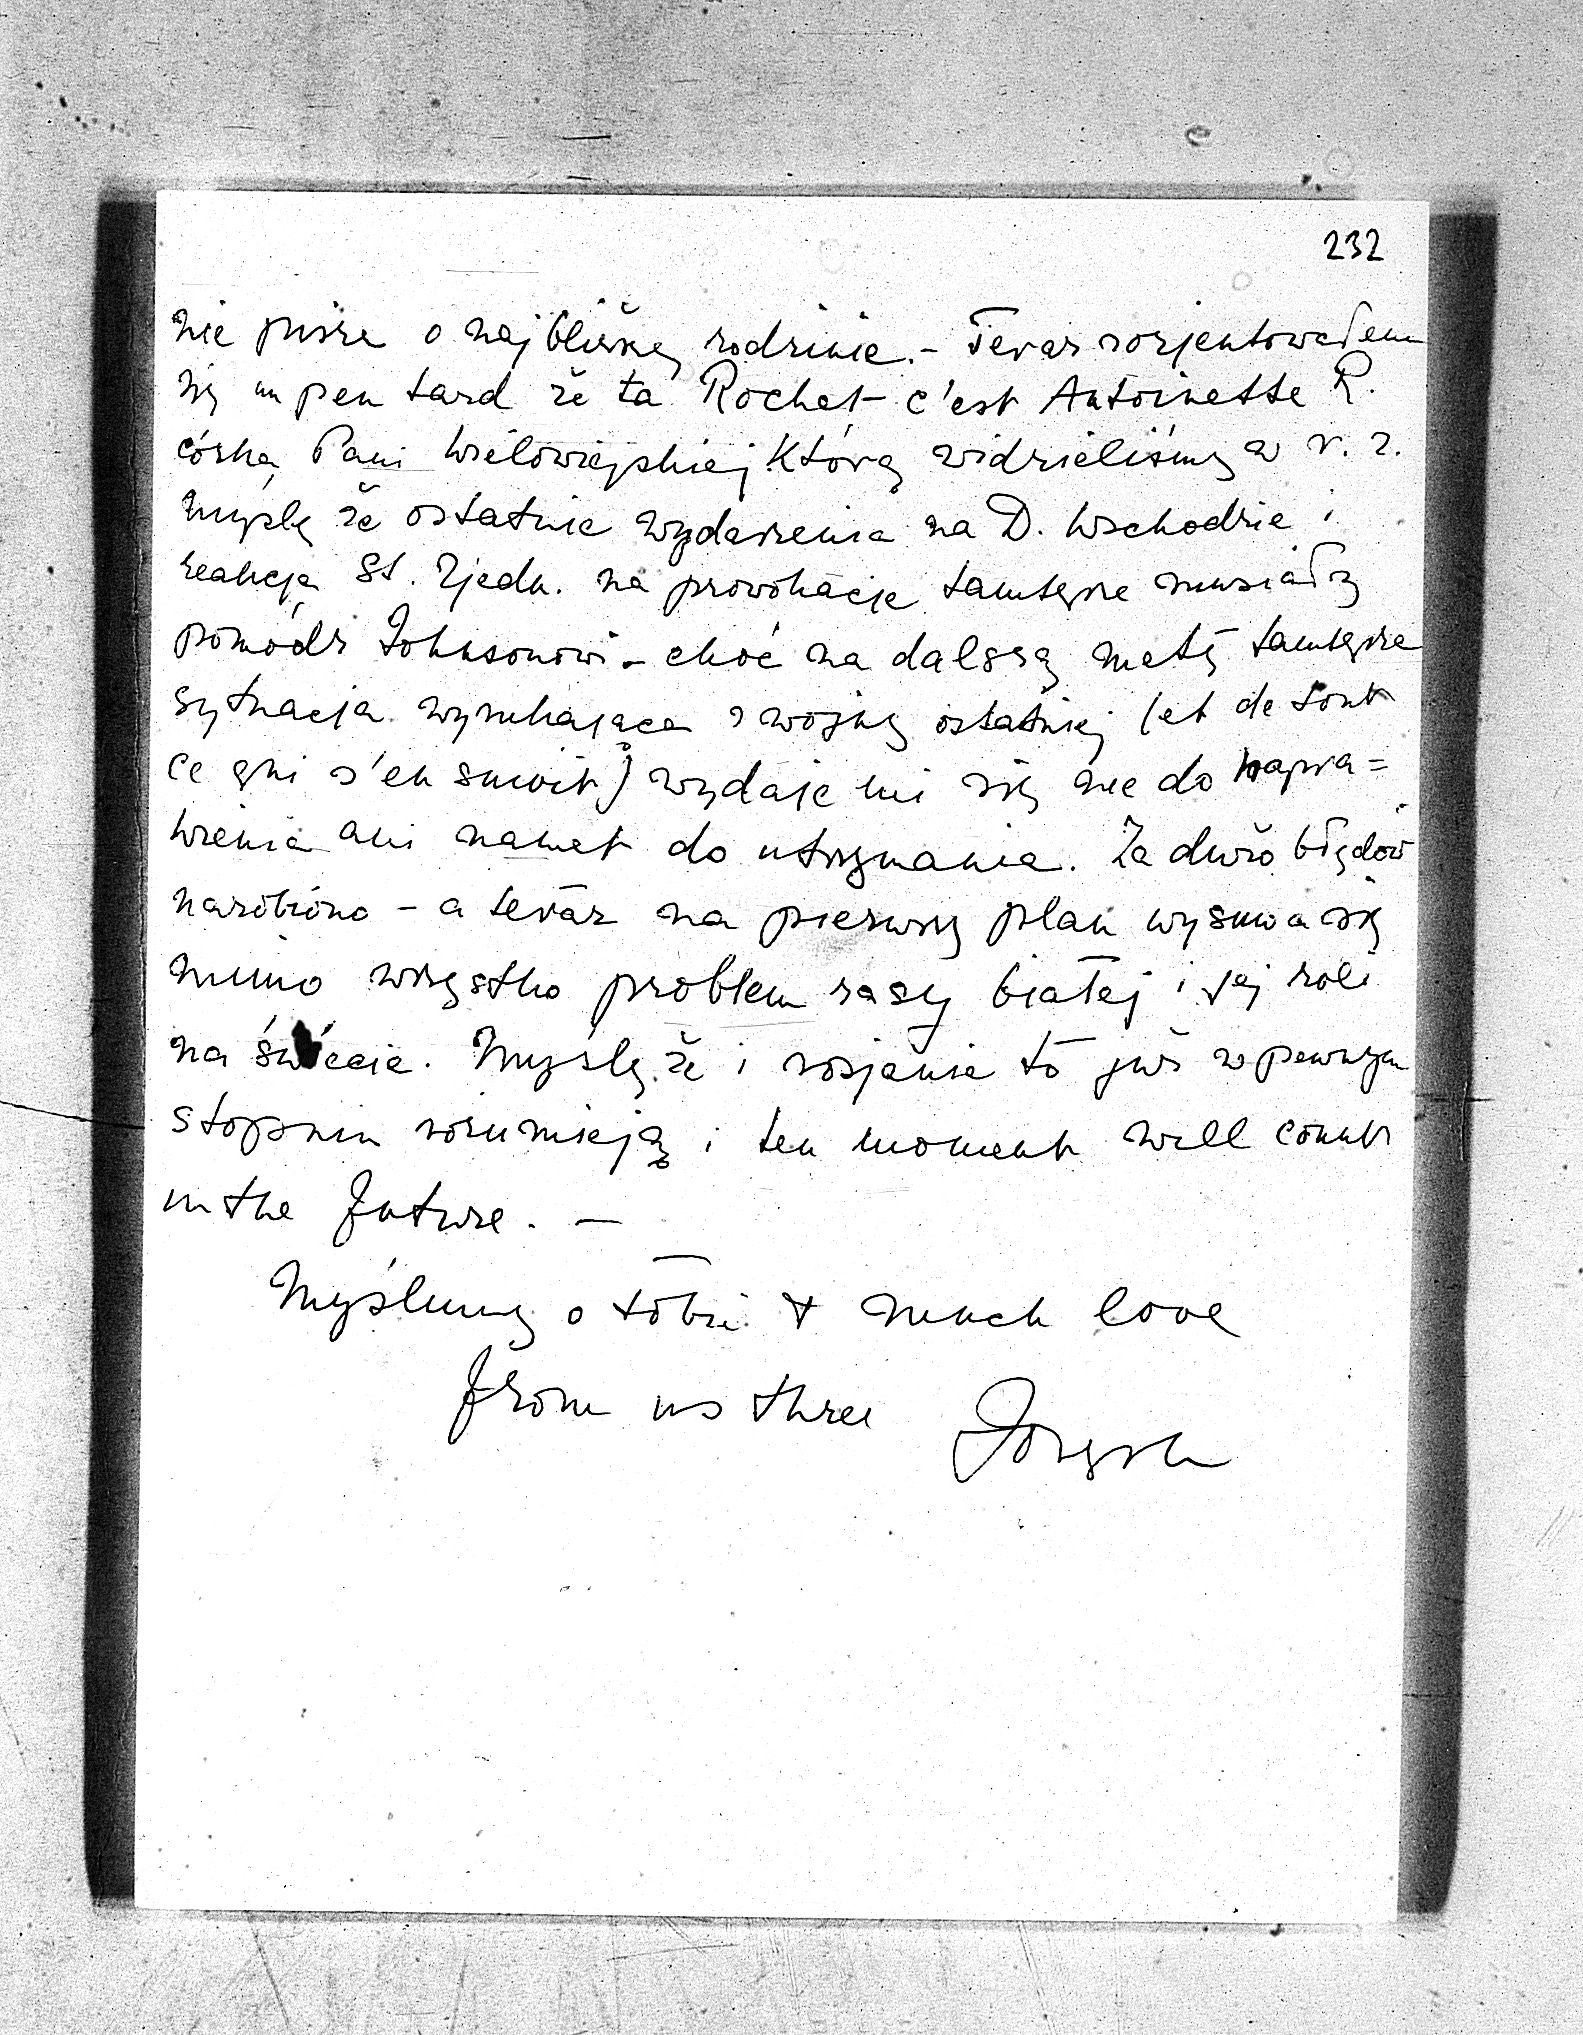 232
nie pisze o najbliższej rodzinie. – Teraz zorjentowałem
się un peu tard że ta Rochet c'est Antoinette R.
córka Pani Wielowiejskiej którą widzieliśmy w r. z.
Myślę że ostatnie wydarzenia na D. Wschodzie i
reakcja St. Zjedn. na prowokacje tamtejsze musiały
pomódz Johnsonowi – choć na dalszą metę tamtejsza
sytuacja wynikająca z wojny ostatniej (et de tout
ce qui s'en suivit) wydaje mi się nie do napra=
wienia ani nawet do utrzymania. Za dużo błędów
narobiono – a teraz na pierwszy plan wysuwa się
mimo wszystko problem rasy białej i jej roli
na świecie. Myślę że i rosjanie to już w pewnym
stopniu rozumieją i ten moment will count
in the future. –
Myślimy o tobie & much love
from us three